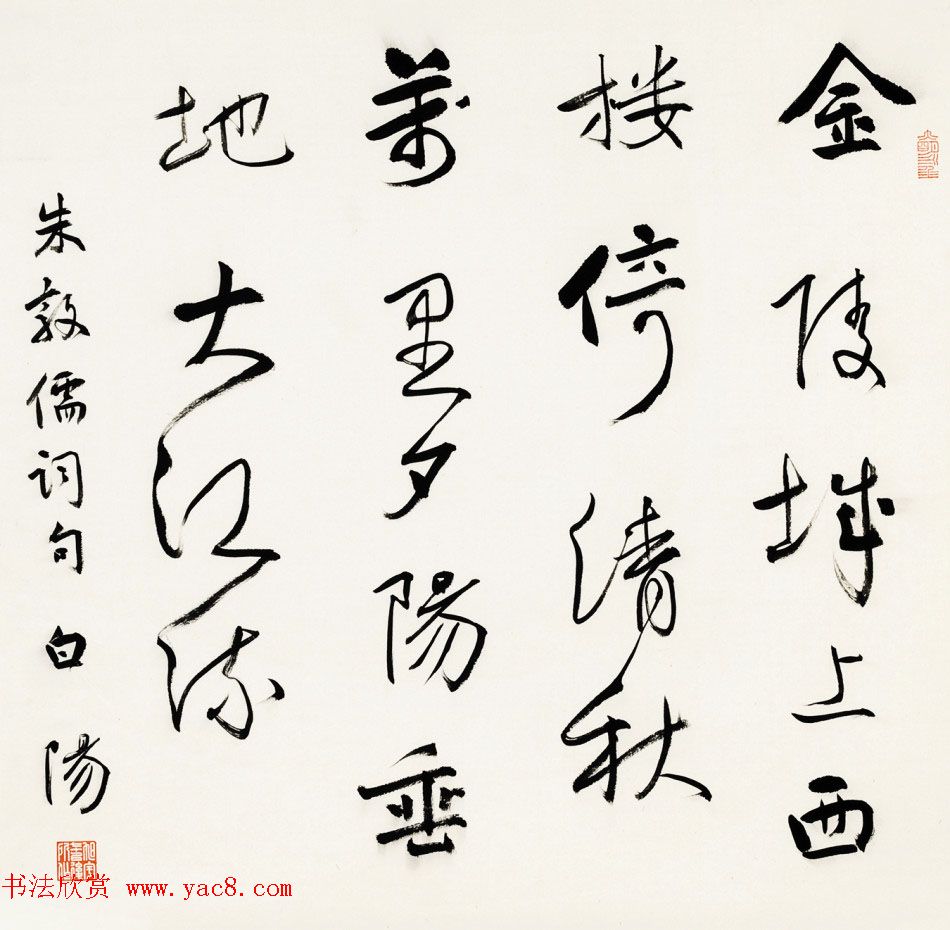 金陵城上西
楼倚清秋
萬里夕陽垂
地大江流
朱敦儒词句 白陽
书法欣赏 www.yac8.com